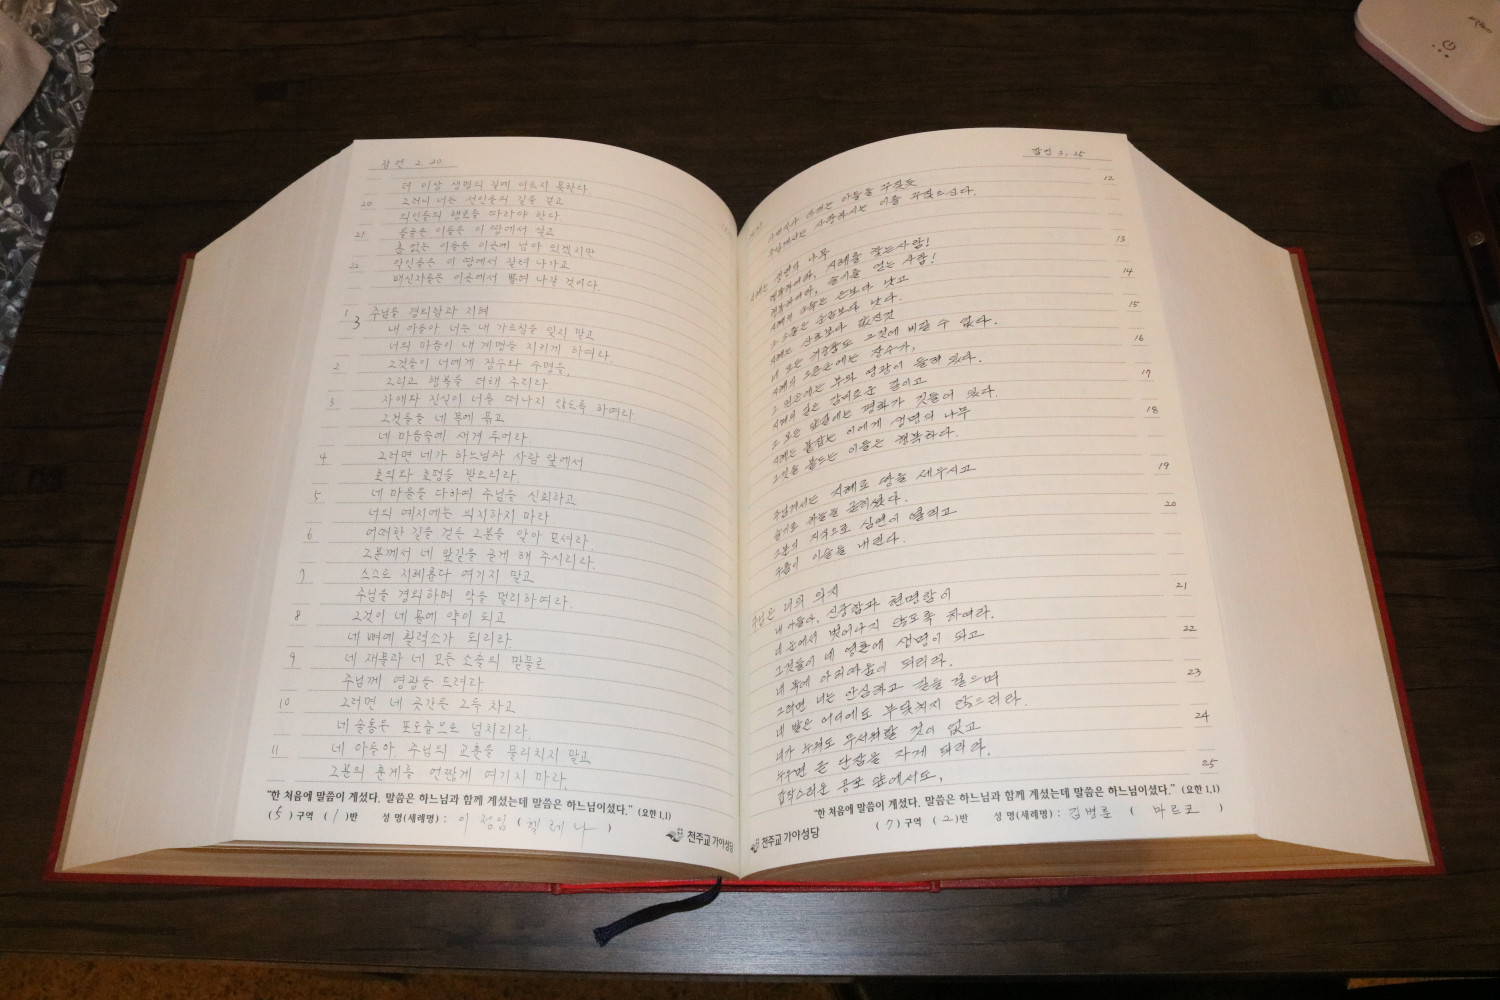 잠언 2, 20
더 이상 생명의 길에 이르지 못한다.
20 그러니 너는 선인들의 길을 걷고
의인들의 행로를 따라야 한다.
21 올곧은 이들은 이 땅에서 살고
흠 없는 이들은 이곳에 남아 있겠지만
22 악인들은 이 땅에서 잘려 나가고
배신자들은 이곳에서 뽑혀 나갈 것이다.
3 주님을 경외함과 지혜
1 내 아들아 너는 내 가르침을 잊지 말고
너의 마음이 내 계명을 지키게 하여라.
2 그것들이 너에게 장수와 수명을,
그리고 행복을 더해 주리라
3 자애와 진실이 너를 떠나지 않도록 하여라
그것들을 네 목에 묶고
네 마음속에 새겨 두어라
4 그러면 네가 하느님과 사람 앞에서
호의와 호평을 받으리라.
5 네 마음을 다하여 주님을 신뢰하고
너의 예지에는 의지하지 마라
6 어떠한 길을 걷든 그분을 알아 모셔라.
그분께서 네 앞길을 곧게 해 주시리라.
7 스스로 지혜롭다 여기지 말고
주님을 경외하며 악을 멀리하여라.
8 그것이 네 몸에 약이 되고
네 뼈에 활력소가 되리라.
9 네 재물과 네 모든 소출의 맏물로
주님께 영광을 드려라.
10 그러면 네 곳간은 그득 차고
네 술통은 포도즙으로 넘치리라.
11 네 아들아, 주님의 교훈을 물리치지 말고
그분의 훈계를 언짢게 여기지 마라.
"한 처음에 말씀이 계셨다. 말씀은 하느님과 함께 계셨는데 말씀은 하느님이셨다." (요한 1,1)
( 5 ) 구역 ( 1 )반 성 명(세례명) : 이 정임 ( 헬레나 )
천주교 가야성당
잠언 3, 25
아끼는 아들을 꾸짖듯 12
주님께서는 사랑하시는 이를 꾸짖으신다.
지혜는 생명의 나무
행복하여라, 지혜를 찾는 사람! 13
행복하여라, 슬기를 얻는 사람!
지혜의 소득은 은보다 낫고 14
그 소출은 순금보다 낫다.
지혜는 산호보다 값진것 15
네 모든 귀중품도 그것에 비길 수 없다.
지혜의 오른손에는 장수가, 16
그 왼손에는 부와 영광이 들려 있다.
지혜의 길은 감미로운 길이고 17
그 모든 앞길에는 평화가 깃들어 있다.
지혜는 붙잡는 이에게 생명의 나무 18
그것을 붙드는 이들은 행복하다.
주님께서는 지혜로 땅을 세우시고 19
슬기로 하늘을 굳히셨다.
그분의 지식으로 심연이 열리고 20
구름이 이슬을 내린다.
주님은 너의 의지
내 아들아, 신중함과 현명함이 21
네 눈에서 벗어나지 않도록 하여라.
그것들이 네 영혼에 생명이 되고 22
네 목에 아리따움이 되리라.
그러면 너는 안심하고 길을 걸으며 23
네 발은 어디에도 부딪치지 않으리라.
네가 누워도 무서워할 것이 없고 24
누우면 곧 단잠을 자게 되리라.
갑작스러운 공포 앞에서도, 25
"한 처음에 말씀이 계셨다. 말씀은 하느님과 함께 계셨는데 말씀은 하느님이셨다." (요한 1,1)
( 7 ) 구역 ( 2 )반 성 명(세례명) : 김병훈 ( 마르코 )
천주교 가야성당